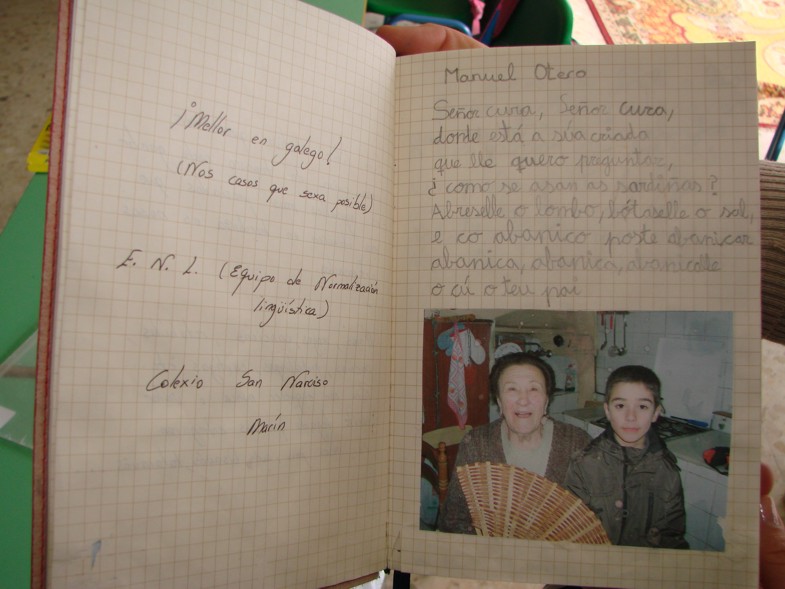 ¡Mellor en galego!
(Nos casos que sexa posible)
E. N. L. (Equipo de Normalización
lingüística)
Colexio San Narciso
Marín
Manuel Otero
Señor cura, Señor cura,
donde está a súa criada
que lle quero preguntar,
¿como se asan as sardinas?
Abreselle o lombo, bótaselle o sal,
e co abanico poste abanicar
abanica, abanica, abanicalle
o cú o teu pai